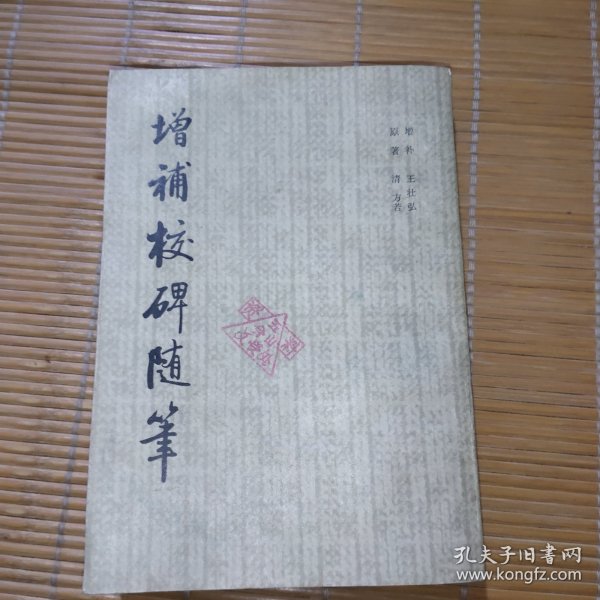 增補校碑随筆
原著 清 方若
增补 王壮弘
孔夫子旧书网
www.kongfz.com